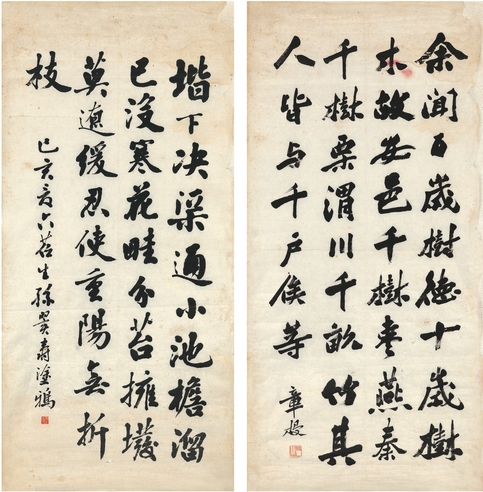 余聞百歲樹德十歲樹
木故安邑千樹枣燕秦
千樹栗渭川千畝竹其
人皆与千户侯等
章梫
堦下决渠通小池檐溜
已没寒花畦分苔擁墢
莫遲缓忍使重陽無折
枝
己亥六生孫壽塗鴉